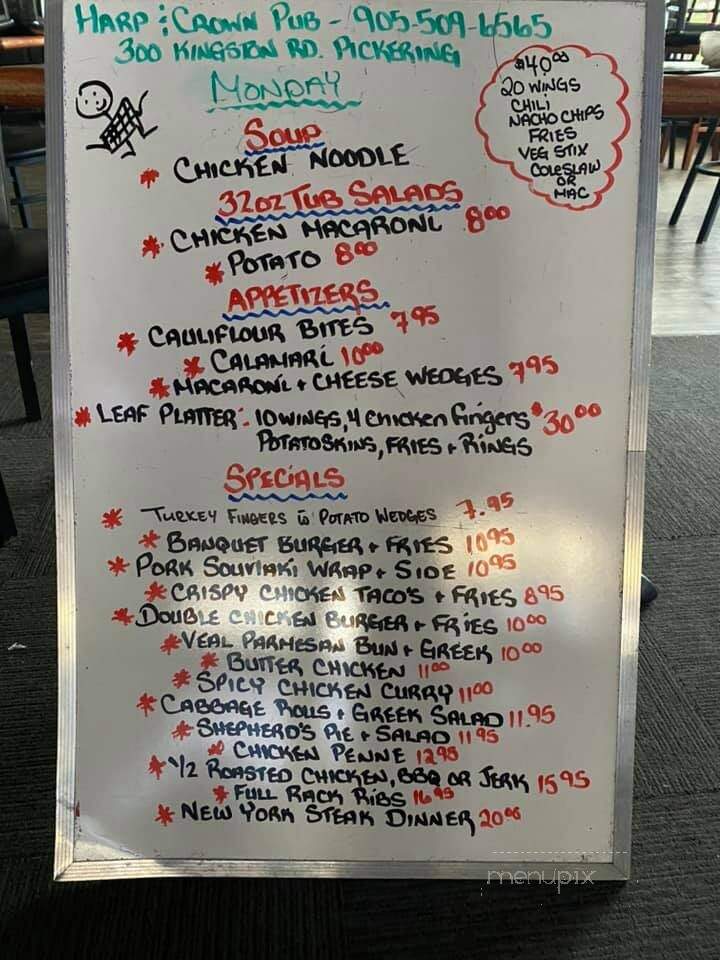 HARP & CROWN PUB - 905-509-6565
300 KINGSTON RD. PICKERING
MONDAY
$40.00
20 WINGS
CHILI
NACHO CHIPS
FRIES
VEG STIX
COLESLAW
OR
MAC
SOUP
* CHICKEN NOODLE
32oz TUB SALADS
* CHICKEN MACARONI 8.00
* POTATO 8.00
APPETIZERS
* CAULIFLOUR BITES 7.95
* CALAMARI 10.00
* MACARONI + CHEESE WEDGES 7.95
* LEAF PLATTER: 10 WINGS, 4 Chicken Fingers $30.00
POTATO SKINS, FRIES + RINGS
SPECIALS
* TURKEY FINGERS W POTATO WEDGES 7.95
* BANQUET BURGER + FRIES 10.95
* PORK SOUVLAKI WRAP + SIDE 10.95
* CRISPY CHICKEN TACO'S + FRIES 8.95
* DOUBLE CHICKEN BURGER + FRIES 10.00
* VEAL PARMESAN BUN + GREEK 10.00
* BUTTER CHICKEN 11.00
* SPICY CHICKEN CURRY 11.00
* CABBAGE ROLLS + GREEK SALAD 11.95
* SHEPHERD'S PIE + SALAD 11.95
* CHICKEN PENNE 12.95
* 1/2 ROASTED CHICKEN, BBQ OR JERK 15.95
* FULL RACK RIBS 16.95
* NEW YORK STEAK DINNER 20.00
menupix